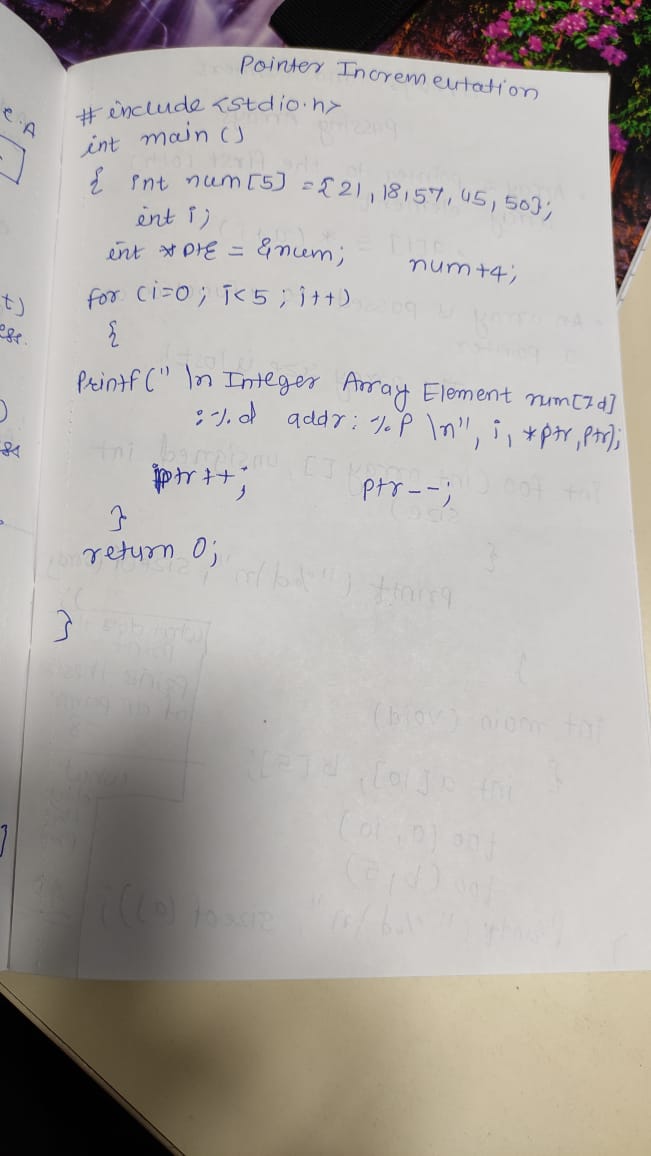 Pointer Incrementation
#include <stdio.h>
int main()
{ int num[5] = {21, 18, 57, 45, 50};
int i;
int *ptr = &num; num+4;
for (i=0; i<5; i++)
{
printf("\n Integer Array Element num[%d]
: %d addr: %p \n", i, *ptr, ptr);
ptr++; ptr--;
}
return 0;
}